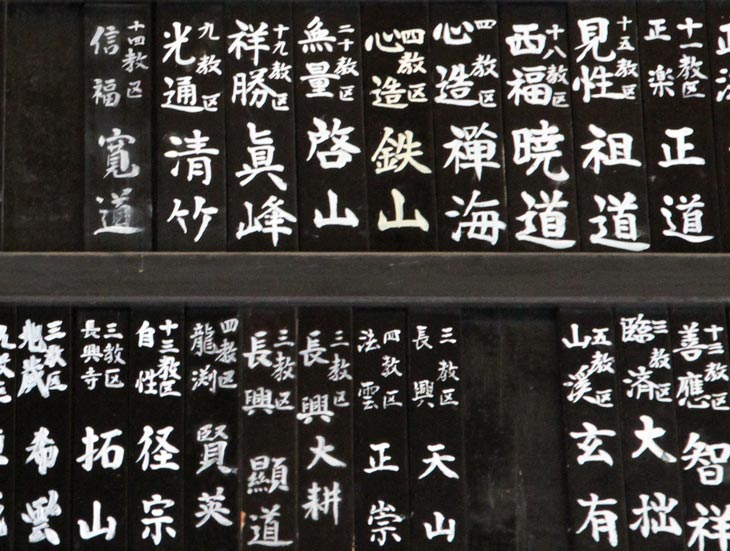 十一教区 正楽 正道
十五教区 見性 祖道
十八教区 西福 暁道
四教区 心造 禅海
四教区 心造 鉄山
二十教区 無量 啓山
十九教区 祥勝 眞峰
九教区 光通 清竹
十四教区 信福 寛道
十三教区 善應 智祥
三教区 臨済 大拙
五教区 山溪 玄有
三教区 長興 天山
四教区 法雲 正崇
三教区 長興 大耕
三教区 長興 顯道
四教区 龍渕 賢英
十三教区 自性 径宗
三教区 長興寺 拓山
三教区 希雲